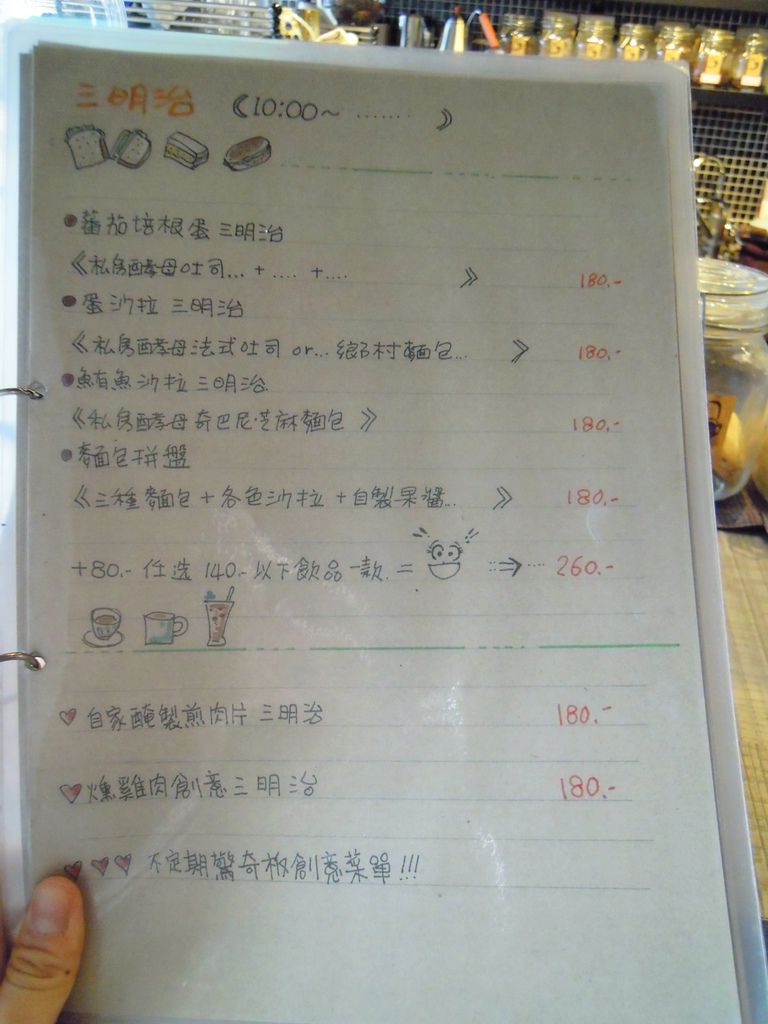 三明治 《10:00~ ........ 》
●蕃茄培根蛋三明治
《私房酵母吐司... + .... +.... 》 180.-
●蛋沙拉 三明治
《私房酵母法式吐司 or... 鄉村麵包... 》 180.-
●鮪魚沙拉三明治
《私房酵母奇巴尼.芝麻麵包 》 180.-
●麵包拼盤
《三種麵包+各色沙拉+自製果醬... 》 180.-
+80.- 任选 140.- 以下飲品一款. = ::⇒ ... 260.-
♥ 自家醃製煎肉片 三明治 180.-
♥ 燻雞肉創意三明治 180.-
♥♥♥ 不定期驚奇板創意菜單!!!